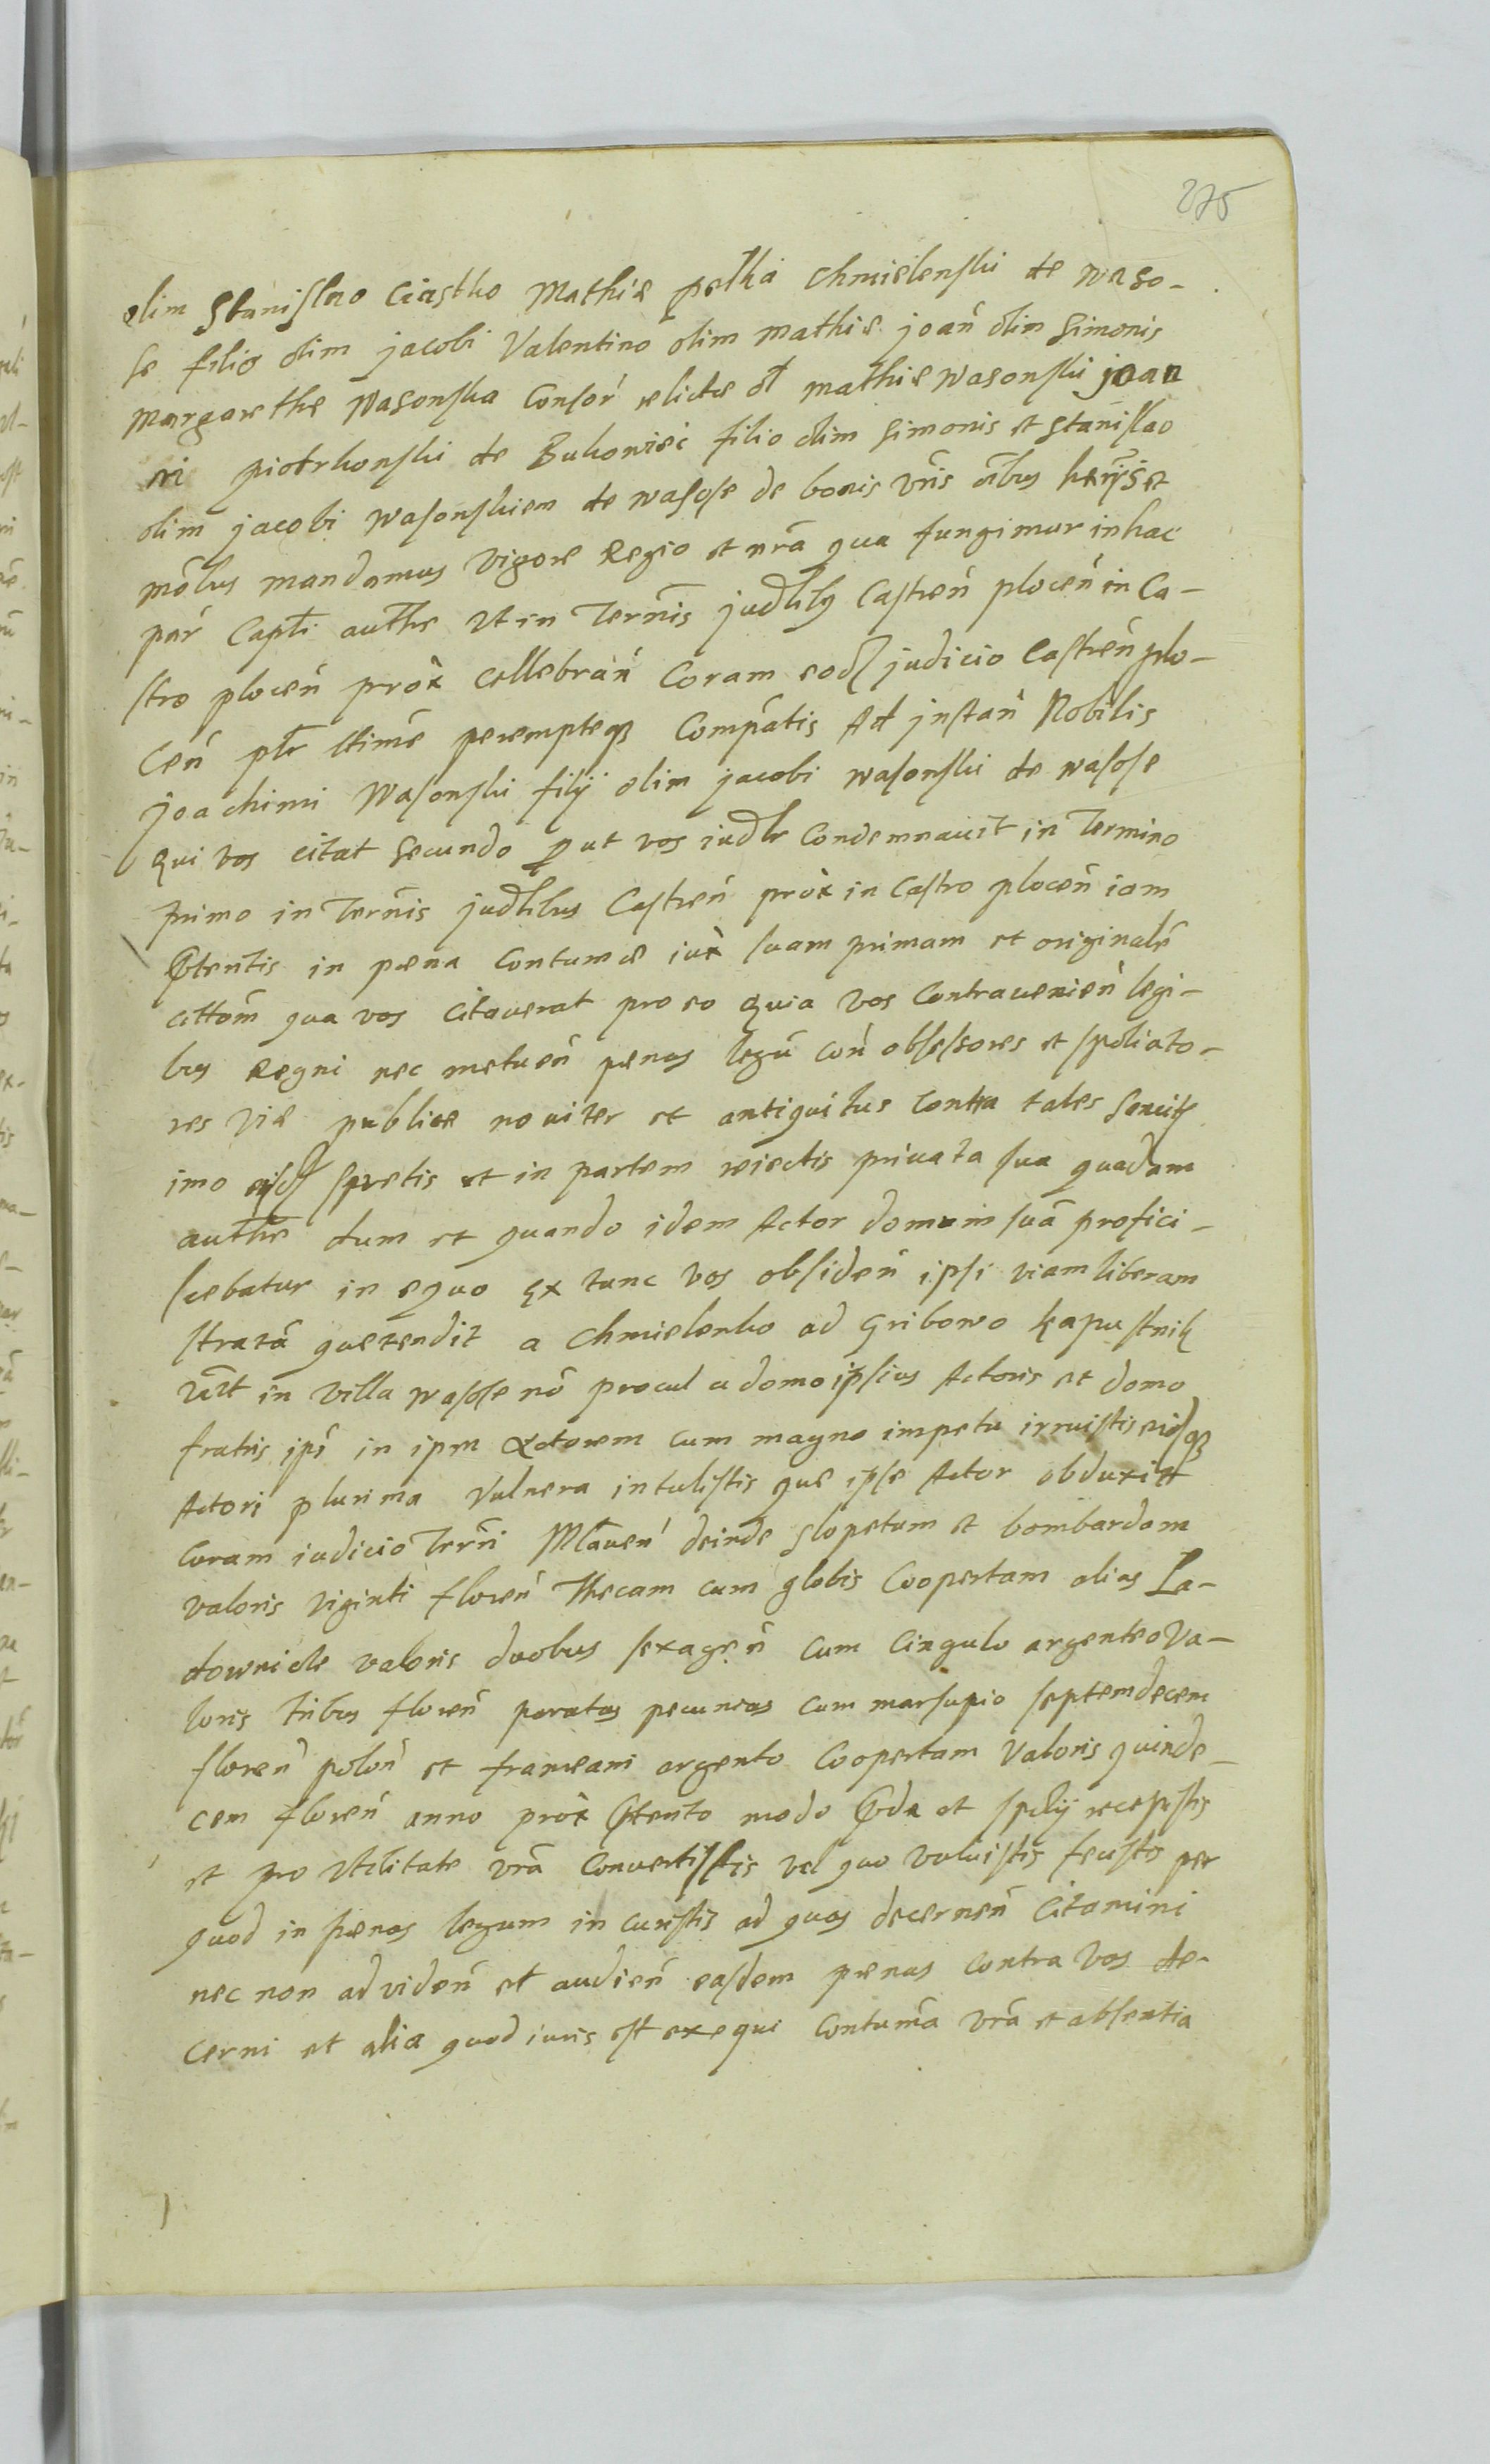 275
olim Stanislao Ciastko Mathiæ pełka Chmielenski de waso-
se filio olim jacobi Valentino olim mathiæ joań olim Simonis
Margarethæ Wasonska Consoŕ relictæ ol mathiæ wasonski joan
ni piotrkonski de Bukowiec filio olim Simonis et stanislao
olim jacobi wasonskiem de wasose de bonis vris oibus heriis et
mobus mandamus vigore Regio et nrā qua fungimur in hac
par Capti authe Ut in Ternis judlibus Castreń ploceń in Ca-
stro ploceń prox Cellebrań Coram eod judicio Castreń plo-
Ceń ptr ltime peremptæq Compatis Ad instań Nobilis
joachimi Wasonski filij olim jacobi wasonski de wasose
Qui vos citat secundo put vos iudlr Condemnauit in Termino
primo in Ternis judlibus Castreń prox in Castro ploceń iam
ptentis in pæna Contumæ iux suam primam et originalē
cittom qua vos Citauerat pro eo Quia vos Contraueńień legi-
bus Regni nec metueń pænas legū coń obsessores et spoliato-
res viæ publicæ nouiter et antiquitus Contra tales
imo eisd spretis et in partem reiectis priuata sua quadam
authe dum et quando idem Actor domum suā profici-
scebatur in equo Ex tunc vos obsideń ipsi viam liberam
stratā quæ tendit a Chmielenko ad Gribowo kapustnik
in villa wasose nō procul a domo ipsius Actoris et domo
fratris ipś in ipm Actorem cum magno impetu irruistis eidq
Actori plurima vulnera intulistis quæ ipse Actor obduxit
Coram iudicio Terri Mlaueń deinde sclopetum et bombardam
valoris viginti floreń Thecam cum globis Coopertam alias La-
downicle valoris duobus sexageń cum Cingulo argenteo va-
loris tribus floreń paratas pecunias cum marsupio septemdecem
floreń poloń et frameam argento Coopertam valoris quinde-
cem floreń anno prox ptento modo pda et spolij recepistis
et pro Utilitate vrā Conuertistis vel quo voluistis fecistis per
quod in pænas legum incuristis ad quas decerneń Citamini
nec non ad videń et audień easdem pænas contra vos de-
cerni et alia quod iuris est exequi Contumā vrā et absentia